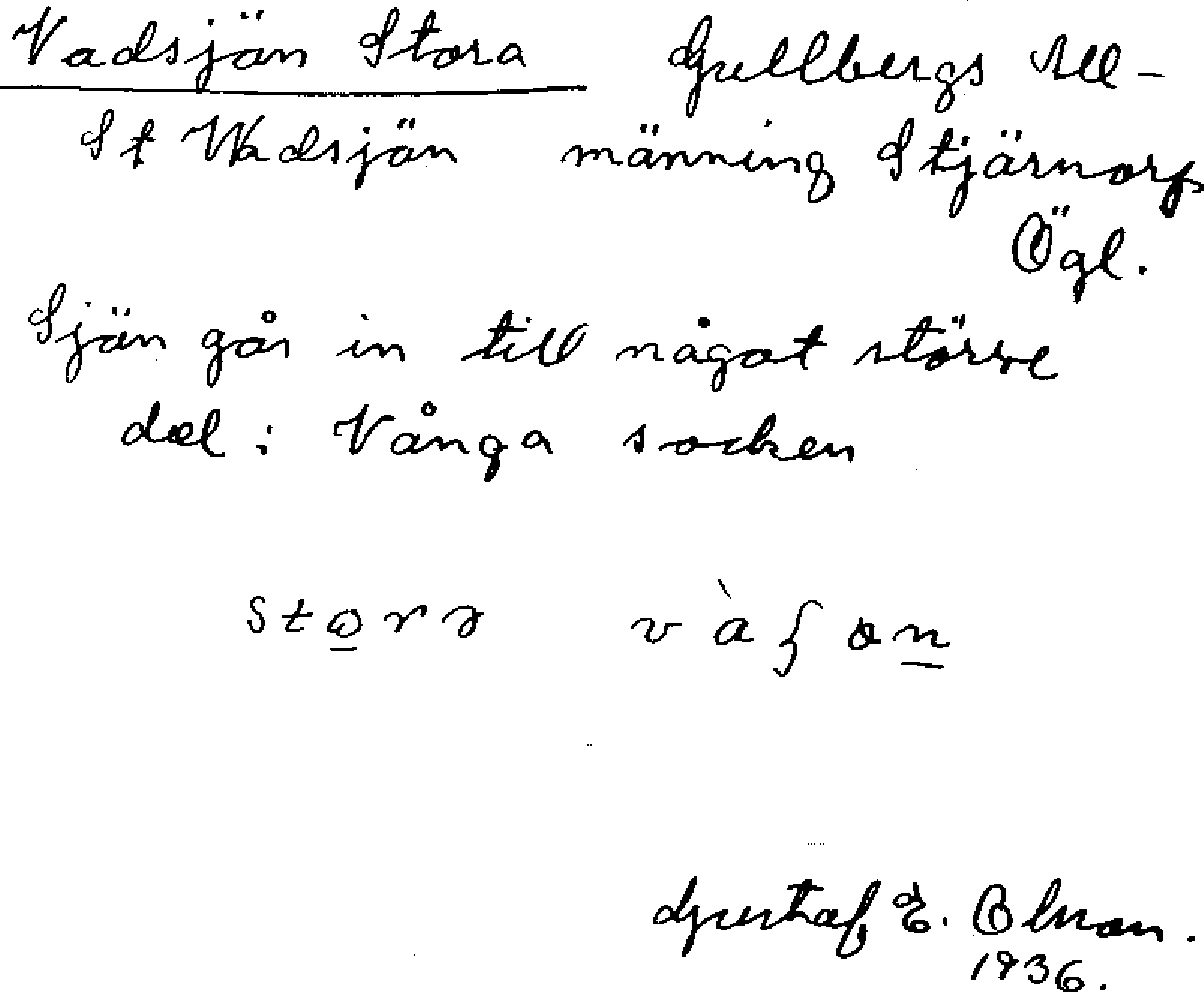 Vadsjön Stora Gullbergs All-
St Wadsjön männing Stjärnorp
Ögl.
Sjön går in till något större
del i Vånga socken
Gustaf E. Olsson.
1936.